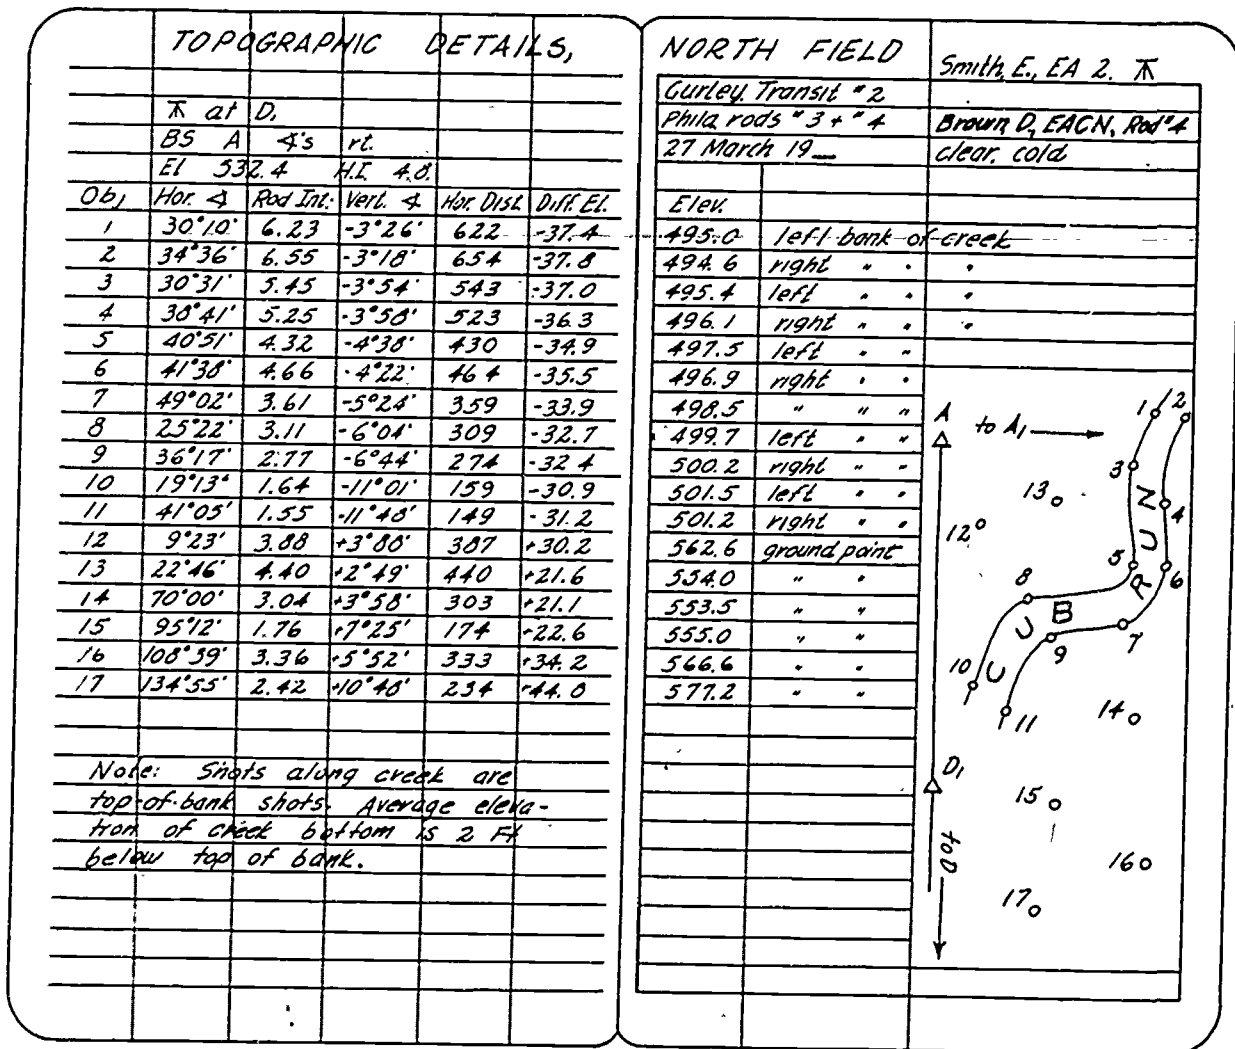 TOPOGRAPHIC DETAILS,
⊼ at D₁
BS A ∡'s rt.
El 532.4 H.I. 4.8
Obj Hor. ∡ Rod Int. Vert. ∡ Hor. Dist. Diff. El.
1 30°10' 6.23 -3°26' 622 -37.4
2 34°36' 6.55 -3°18' 654 -37.8
3 30°31' 5.45 -3°54' 543 -37.0
4 38°41' 5.25 -3°58' 523 -36.3
5 40°51' 4.32 -4°38' 430 -34.9
6 41°38' 4.66 -4°22' 464 -35.5
7 49°02' 3.61 -5°24' 359 -33.9
8 25°22' 3.11 -6°04' 309 -32.7
9 36°17' 2.77 -6°44' 274 -32.4
10 19°13' 1.64 -11°01' 159 -30.9
11 41°05' 1.55 -11°48' 149 -31.2
12 9°23' 3.88 387 +30.2
13 22°46' 4.40 +2°49' 440 +21.6
14 70°00' 3.04 +3°58' 303 +21.1
15 95°12' 1.76 +7°25' 174 +22.6
16 108°39' 3.36 +5°52' 333 +34.2
17 134°55' 2.42 +10°48' 234 +44.8
Note: Shots along creek are
top-of-bank shots. Average eleva-
tion of creek bottom is 2 Ft
below top of bank.
NORTH FIELD
Smith, E., EA 2. ⊼
Gurley Transit #2
Phila rods #3 + #4
Brown D, EACN, Rod #4
27 March 19__
clear, cold
Elev.
495.0 left bank of creek
494.6 right " " "
495.4 left " " "
496.1 right " " "
497.5 left " "
496.9 right " "
498.5 " " "
499.7 left " "
500.2 right " "
501.5 left " "
501.2 right " "
562.6 ground point
554.0 " "
553.5 " "
555.0 " "
566.6 " "
577.2 " "
A
to A₁
1 2
3
4
13
12
5 6
8
7
9
10
11
BUB RUN
14
D₁
15
to D
16
17